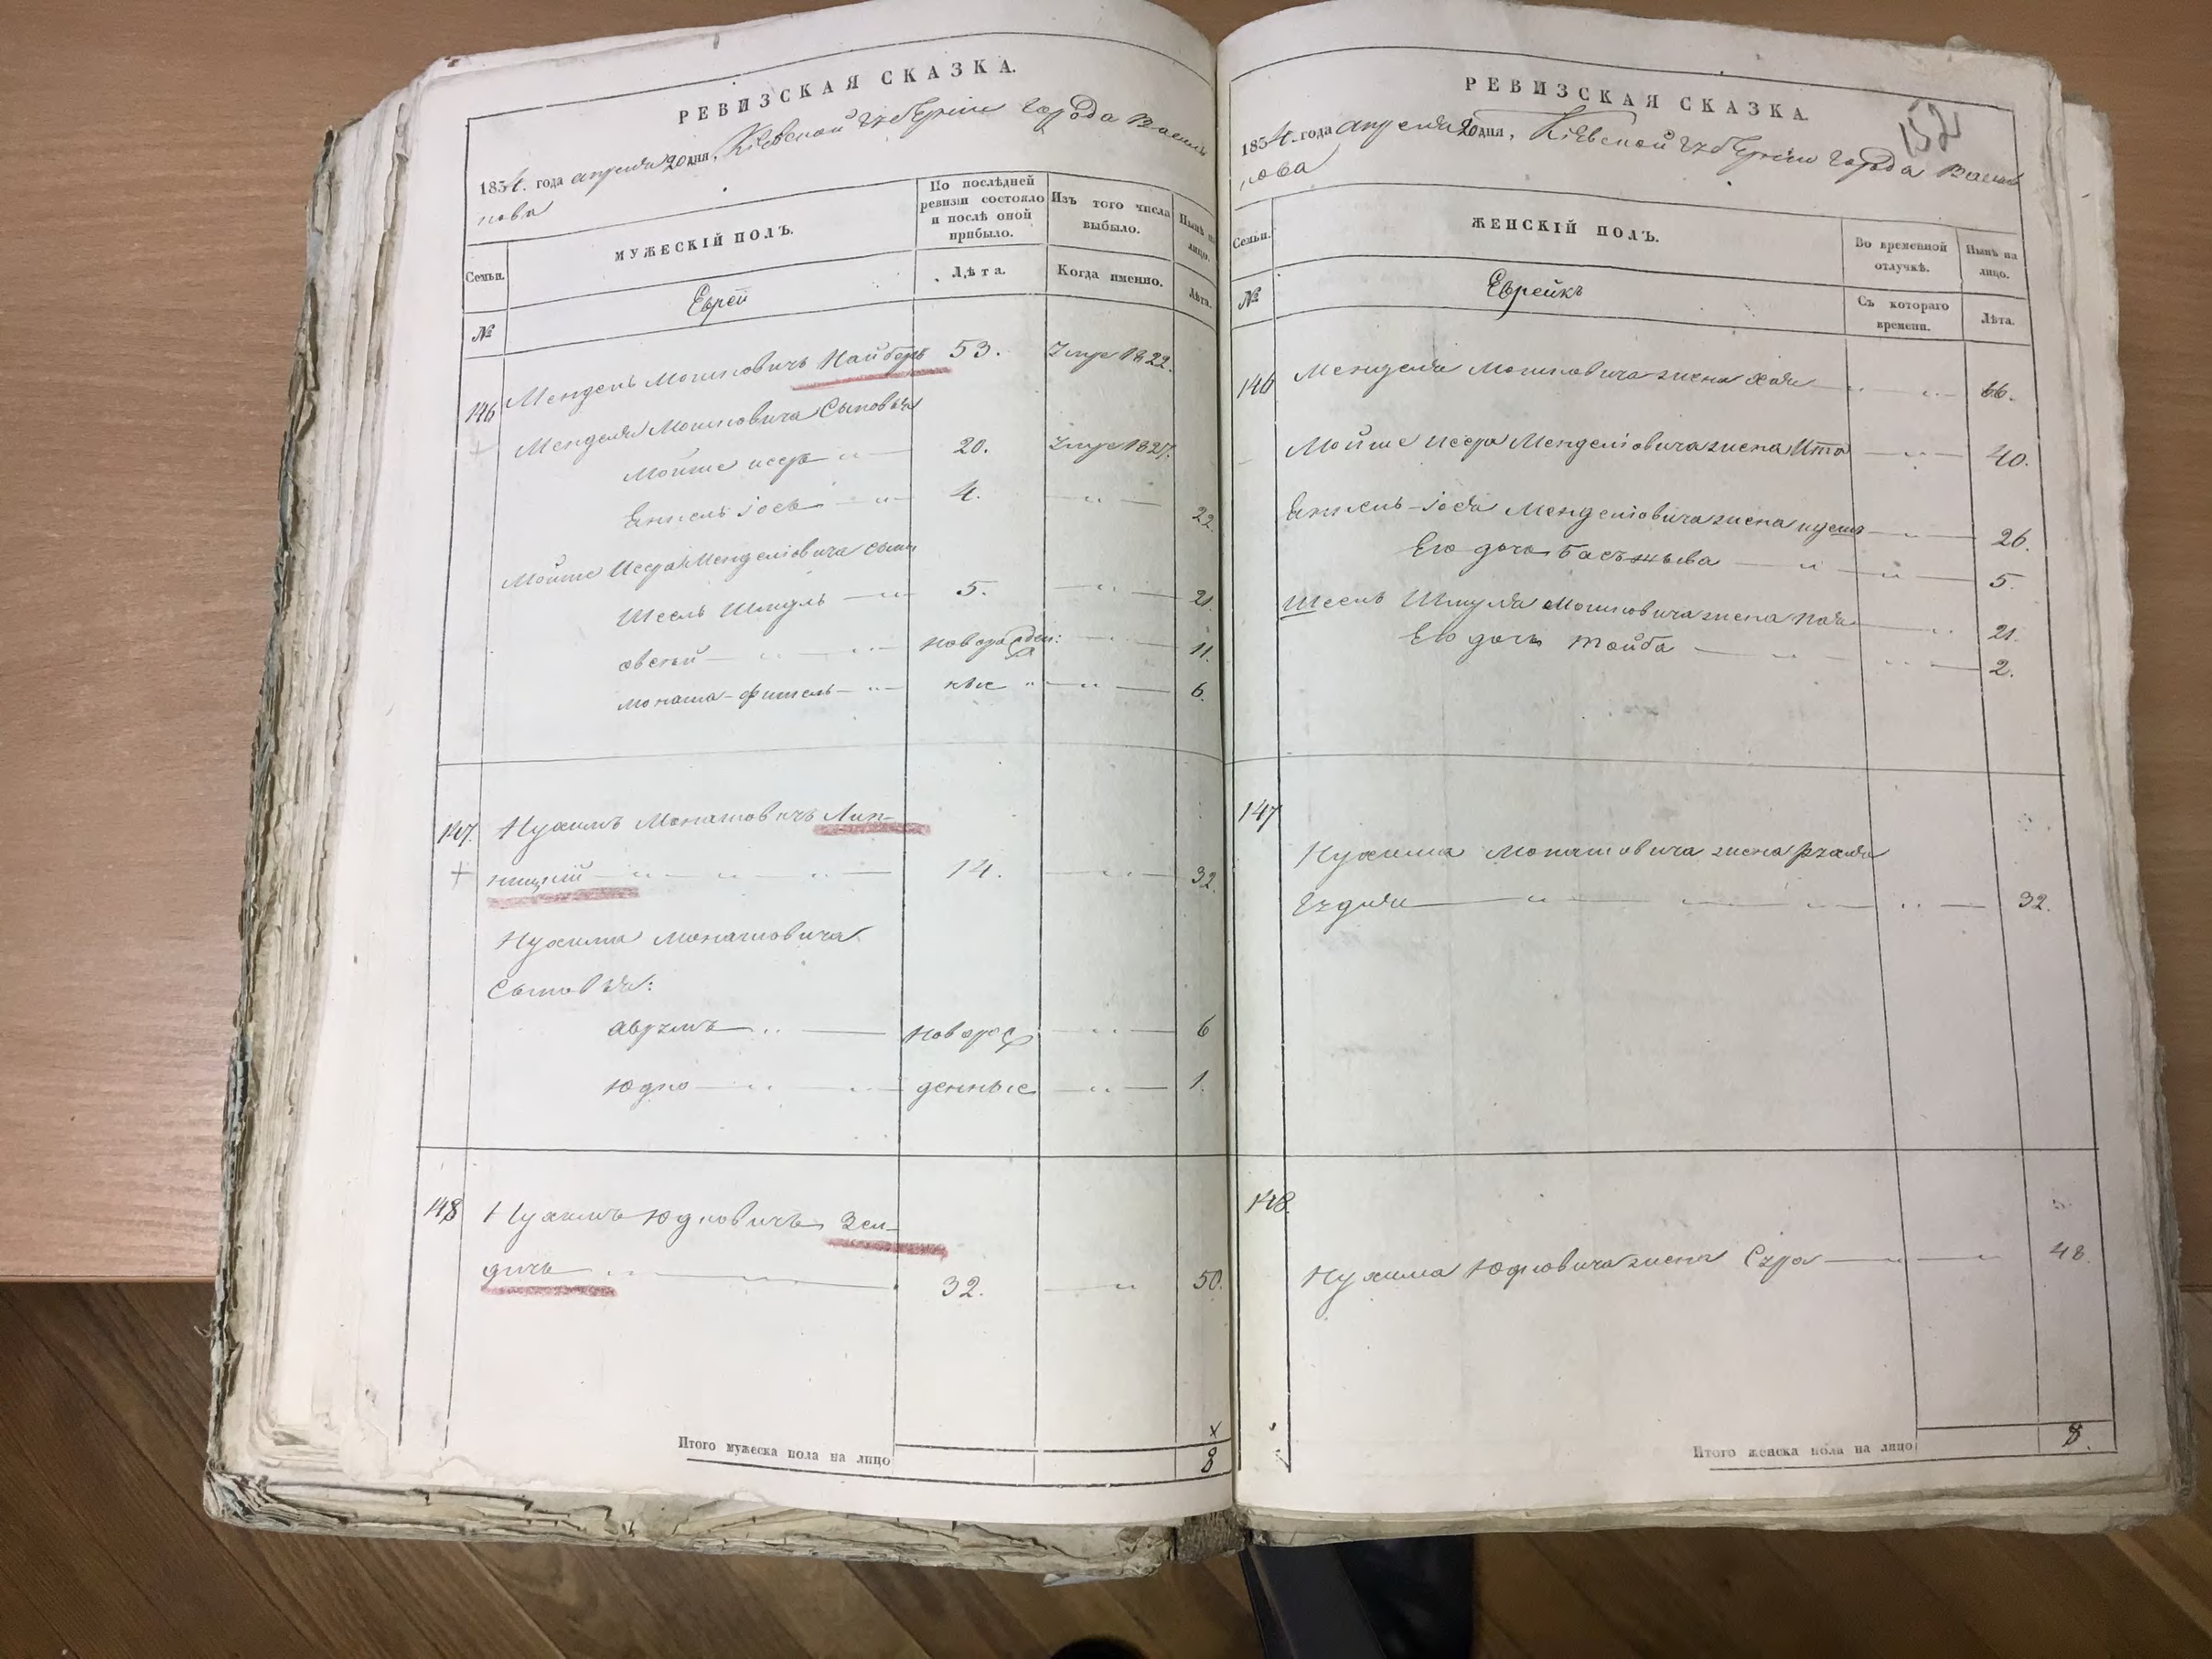 РЕВИЗСКАЯ СКАЗКА.
1854. года апреля 20 дня, Кіевской Губерніи города Василь
кова
Семьи.
МУЖЕСКІЙ ПОЛЪ.
По послѣдней ревизіи состояло и послѣ оной прибыло.
Изъ того числа выбыло.
Нынѣ на лицо.
Лѣта.
Когда именно.
Лѣта.
№
Еврей
146 Мендель Мошковичъ 53. Умре 1822.
Менделя Мошковича Сыновья
Мойше Исеръ 20. Умре 1827.
Янкель Іось 4. 22.
Мойше Исера Менделіовича сыны
Шмуль 5. 21.
Овсей новорожден: 11.
Монаша-Фишель ные 6.
147. Нухимъ Монашовичъ Лип-
ницкій 14. 32.
Нухима Монашовича
Сыновья:
Аврумъ новорож 6
Юдко денные 1.
148 Нухимъ Юдковичъ Зей-
дичъ 32. 50.
Итого мужеска пола на лицо 8
РЕВИЗСКАЯ СКАЗКА.
152
1854. года апреля 20 дня, Кіевской Губерніи города Василь
кова
Семьи.
ЖЕНСКІЙ ПОЛЪ.
Во временной отлучкѣ.
Нынѣ на лицо.
№
Еврейкъ
Съ котораго времени.
Лѣта.
146 Менделя Мошковича жена Хая 66.
Мойше Исера Менделіовича жена Ита 40.
Янкель-Іося Менделіовича жена 26.
Его дочь Бася 5.
Шмуля Мошковича жена 21.
Его дочь Тойба 2.
147
Нухима Монашовича жена Рухля
Гудля 32.
148.
Нухима Юдковича жена Сура 48.
Итого женска пола на лицо 8.